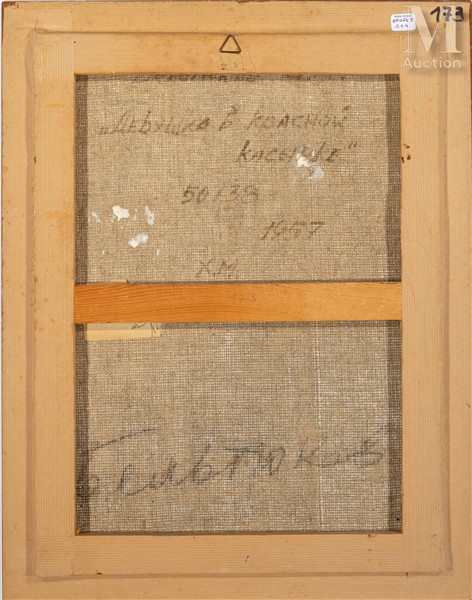 173
M
Auction
„ДЕВУШКА В КРАСНОЙ
КОСЫНКЕ"
50x38
1957
Х.М
Бельтюков